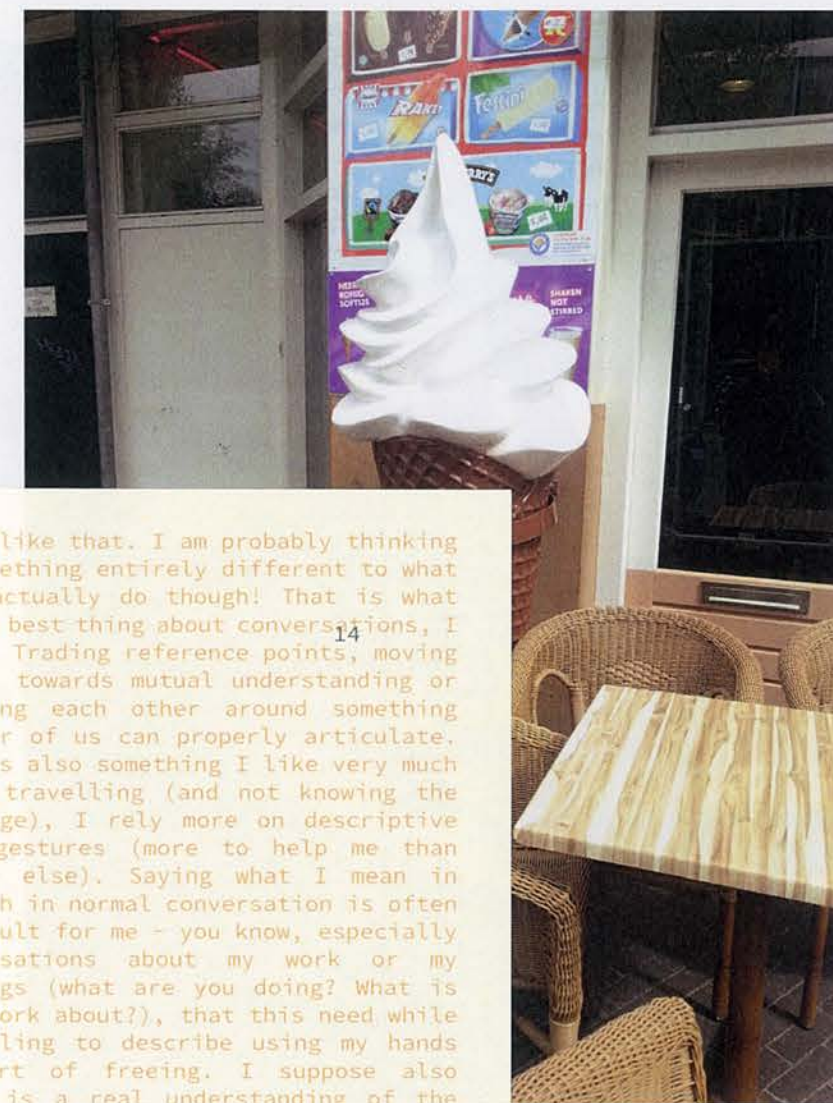 RAKET
Festini
RRY'S
SOFTIJS
SHAKEN
NOT
STIRRED
like that. I am probably thinking
ething entirely different to what
actually do though! That is what
best thing about conversations, I
14
Trading reference points, moving
towards mutual understanding or
ng each other around something
r of us can properly articulate.
s also something I like very much
travelling (and not knowing the
ge), I rely more on descriptive
gestures (more to help me than
else). Saying what I mean in
h in normal conversation is often
ult for me - you know, especially
sations about my work or my
gs (what are you doing? What is
ork about?), that this need while
ling to describe using my hands
rt of freeing. I suppose also
is a real understanding of the